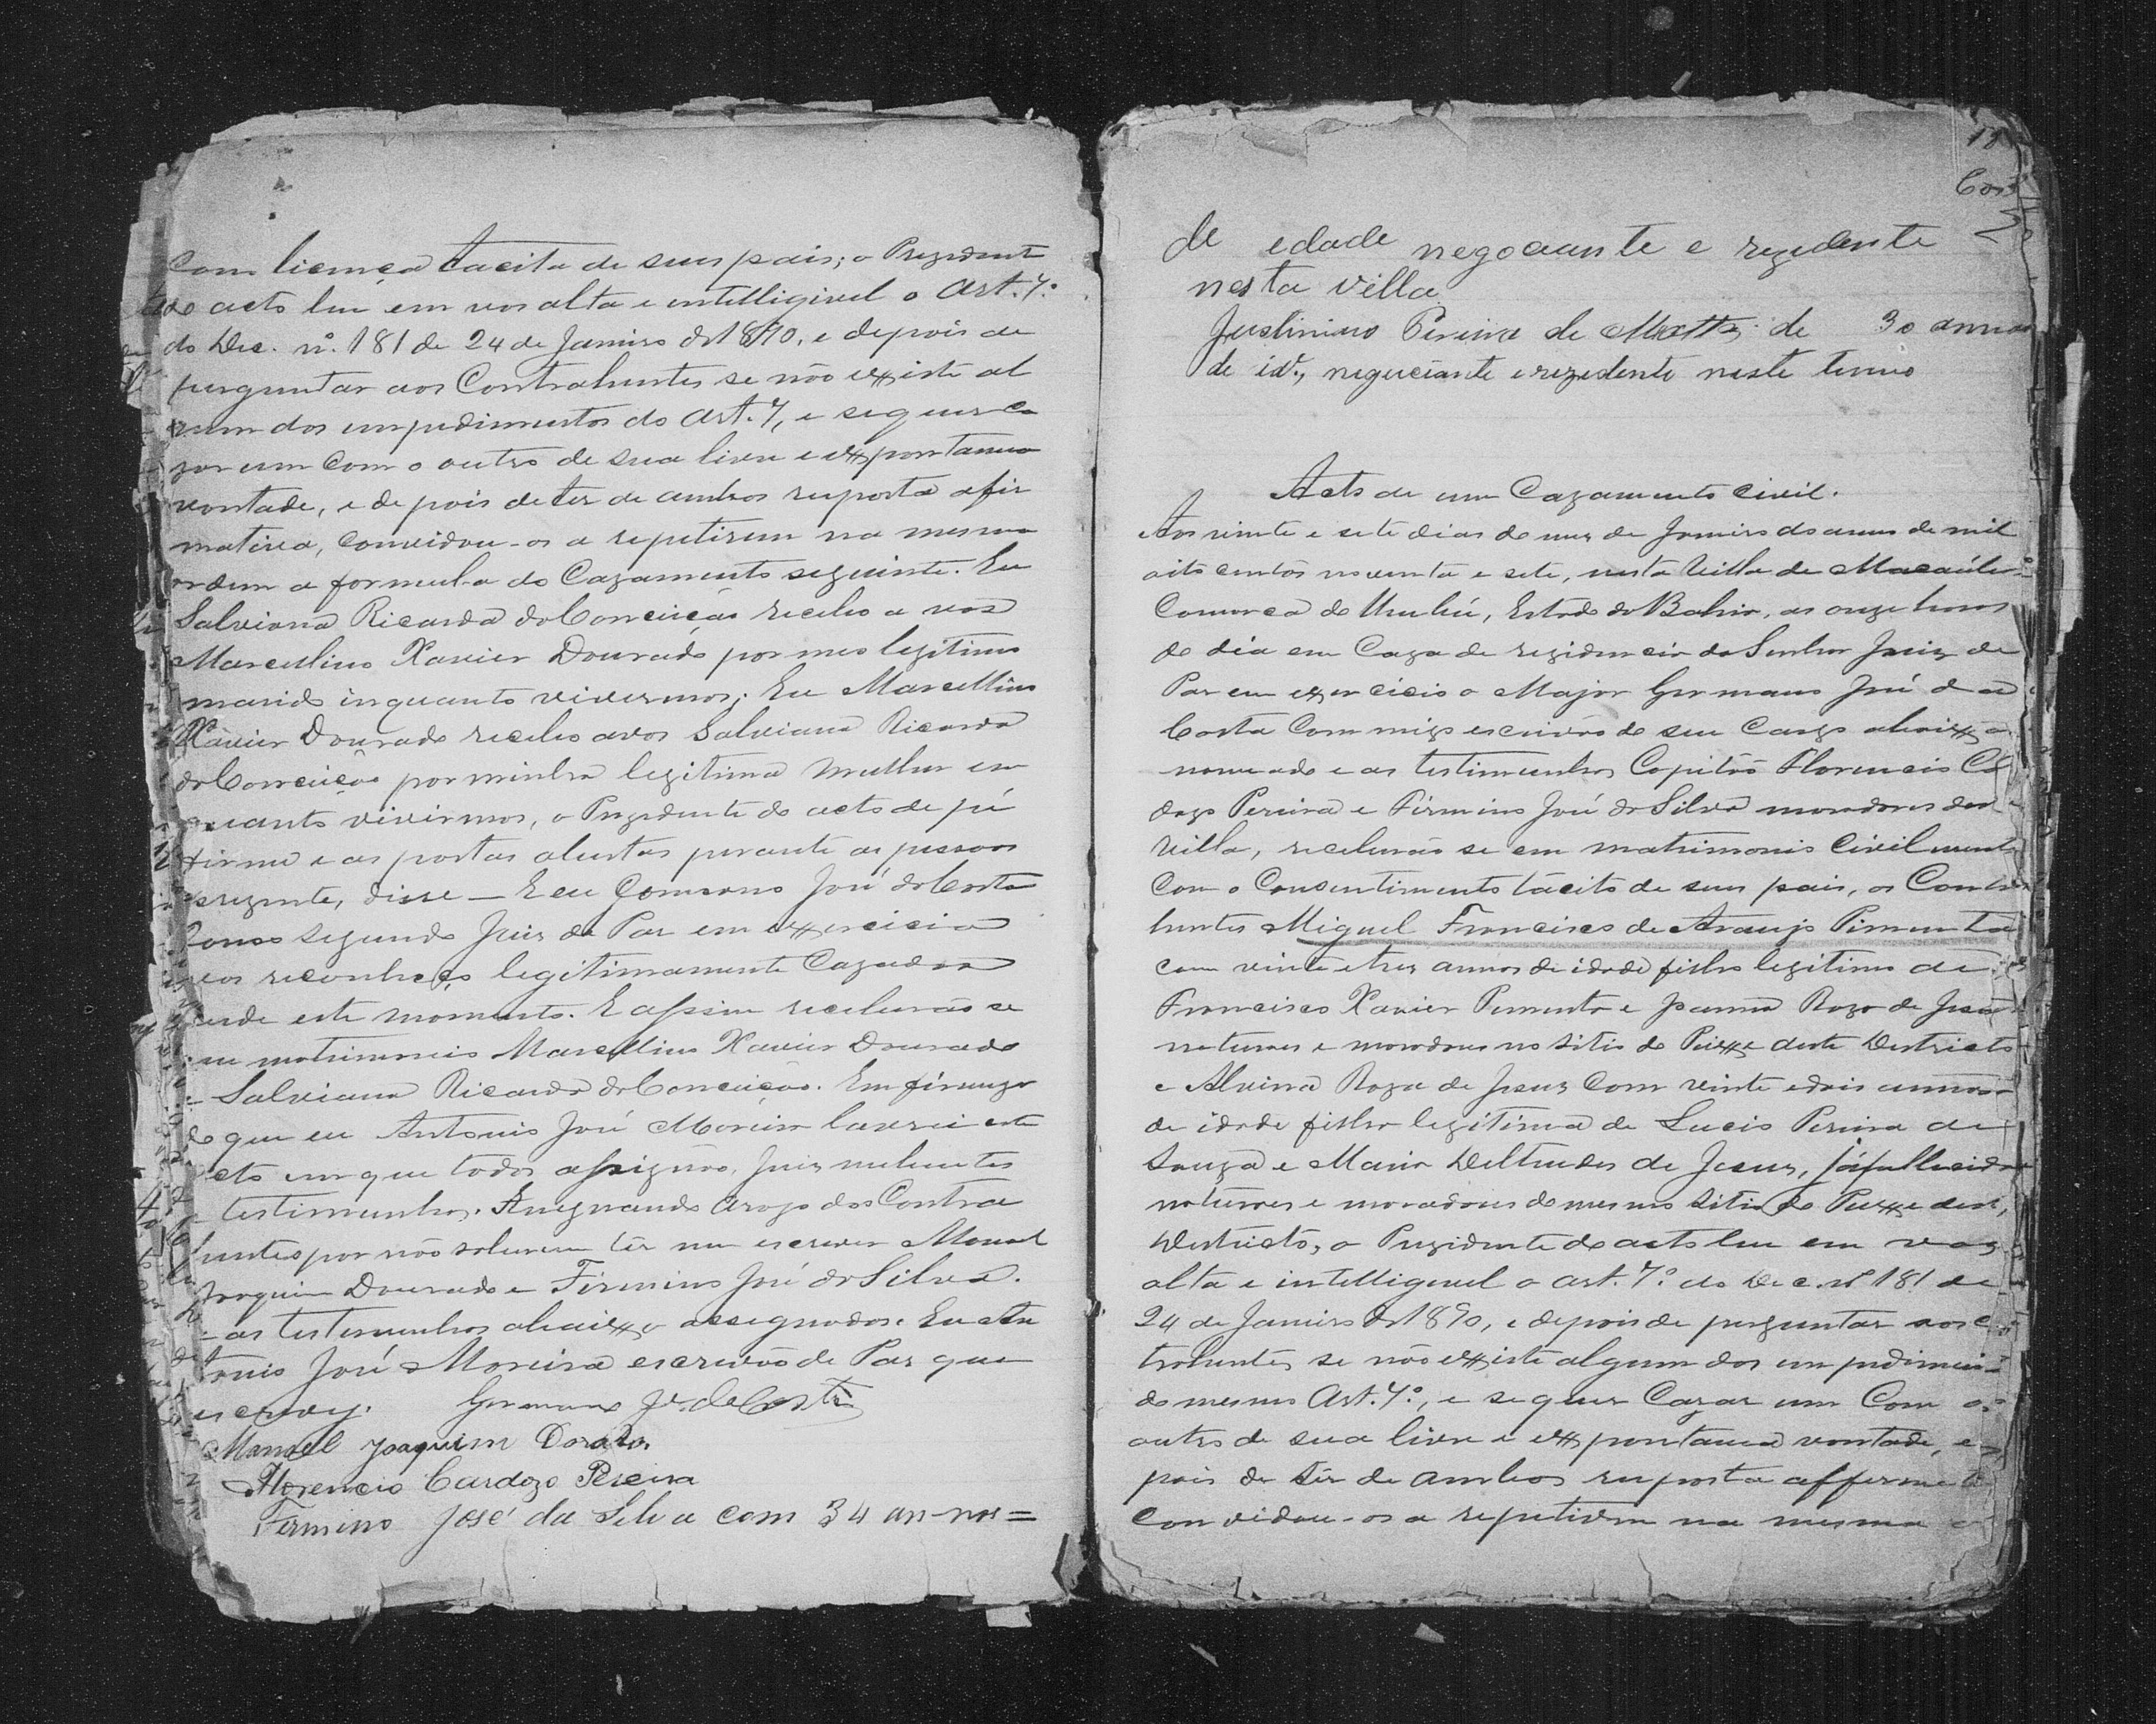 Com licença tacita de seus pais; o Prezidente
do acto leu em vos alta e intelligivel o Art. 7.º
do Dec. nº. 181 de 24 de Janeiro de 1890, e depois de
perguntar aos Contrahentes se não existe al
gum dos empedimentos do Art. 7, e se quer ca
zar um com o outro de sua livre e expontanea
vontade, e depois de ter de ambos resposta afir
mativa, convidou-os a repetirem na mesma
ordem a formula do Cazamento seguinte. Eu
Salviana Ricarda da Conceição recebo a vos
Marcellino Xavier Dourado por meo legitimo
marido inquanto vivermos; Eu Marcellino
Xavier Dourado recebo a vos Salviana Ricarda
da Conceição por minha legitima mulher em
quanto vivirmos, o Prezidente do acto de pé
firme e as portas abertas perante as pessoas
prezente, disse — E eu Germano José da Costa
como segundo Juis de Pas em exercicio
vos reconheço legitimamente Cazados
desde este momento. E assim receberão se
em matrimonio Marcellino Xavier Dourado
e Salviana Ricarda da Conceição. Em firmeza
do que eu Antonio José Moreira lavrei este
acto em que todos assignão, Juis nubentes
e testimunhas. Assignando arogo dos Contra
hentes por não saberem lêr nem escrever Manoel
Joaquim Dourado e Firmino José da Silva.
e as testemunhas abaixo assegnados. Eu An
tonio José Moreira escrivão de Pas que
escrevy. Germano Jé. da Costa
Manoel Joaquim Dorado
Florencio Cardozo Pereira
Fermino José da Silva com 34 an-nos=
18
de edade negociante e rezedente
nesta villa
Justinino Pereira de Mattos de 30 annos
de id.e, negociante e rezedente neste termo
Acto de um Cazamento Civil.
Aos vinte e sete dias do mes de Janeiro do anno de mil
oito centos noventa e sete, nesta Villa de Macaúbas
Comarca de Urubú, Estado da Bahia, as onze horas
do dia em Caza de rezidencia do Senhor Juis de
Pas em exercicio o Major Germano José da
Costa Commigo escrivão de seu Cargo abaixo
nomeado e as testimunhas Capitão Florencio Car
dozo Pereira e Firmino José da Silva moradores desta
Villa, receberão se em matrimonio Civil mente
Com o Consentimento tácito de seus pais, os Contra
hentes Miguel Francisco de Araujo Pimenta
com vinte e tres annos de idade filho legitimo de
Francisco Xavier Pimenta e Joanna Roza de Jesus
naturaes e moradores no sitio do Peixe deste Destricto
e Alvina Roza de Jesus Com vinte e dois annos
de idade filha legitima de Lucio Pereira de
Souza e Maria Deltrudes de Jesus, já fallecida
naturaes e moradores do mesmo sitio do Peixe deste
Destricto, o Prezidente do acto leu em vos
alta e intelligivel o art. 7.º do Dec. nº 181 de
24 de Janeiro de 1890, e depois de perguntar aos con
trahentes se não existe algum dos empedimen
do mesmo Art. 7.º, e se quer Cazar um Com o
outro de sua livre e expontanea vontade, e de
pois de têr de ambos resposta affirmati
convidou-os a repetirem na mesma